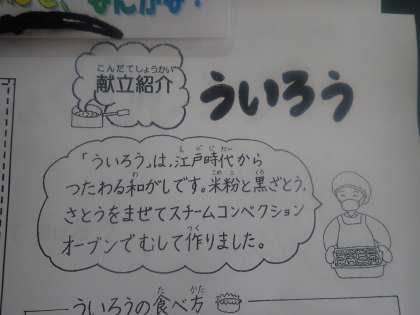 なんかな?
こんだてしょうかい
献立紹介
ういろう
「ういろう」は、江戸時代から
つたわる和がしです。米粉と黒ざとう、
さとうをまぜてスチームコンベクション
オーブンでむして作りました。
ういろうの食べ方